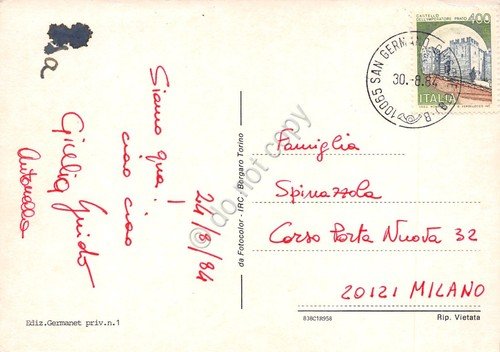 a
Siamo qua!
ciao ciao
24/8/84
Giullia Guido
Antonella
Ediz.Germanet priv.n.1
da Fotocolor - IRC - Borgaro Torino
do not copy
CASTELLO
DELL'IMPERATORE PRATO
400
ITALIA
10065 SAN GERMANO
30.-8.84
Famiglia
Spinazzola
Corso Porta Nuova 32
20121 MILANO
83BC18958
Rip. Vietata